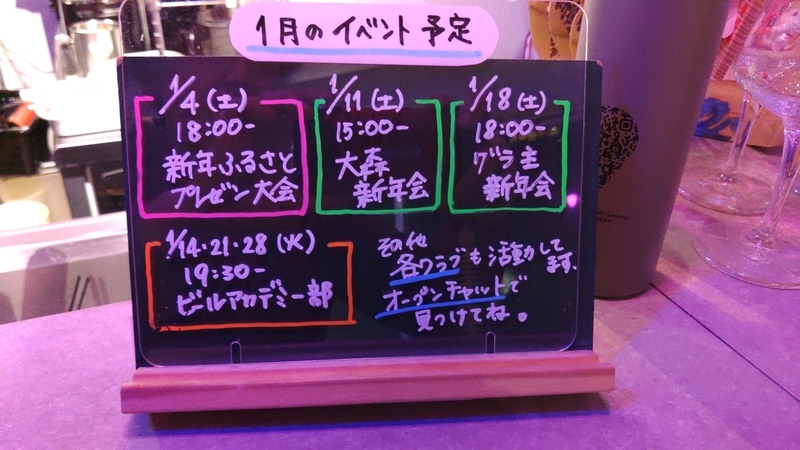 1月のイベント予定
1/4(土)
18:00-
新年ふるさと
プレゼン大会
1/11(土)
15:00-
大森
新年会
1/18(土)
18:00-
グラ主
新年会
1/14・21・28(火)
19:30-
ビールアカデミー部
その他
各クラブも活動してます。
オープンチャットで
見つけてね。